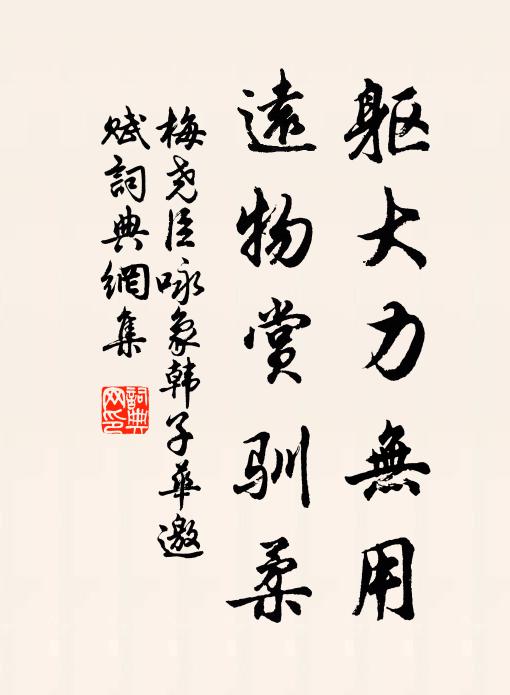 躯大力無用
遠物賞馴柔
梅尧臣咏象韩子華邀
赋詞典網集
詞典网印